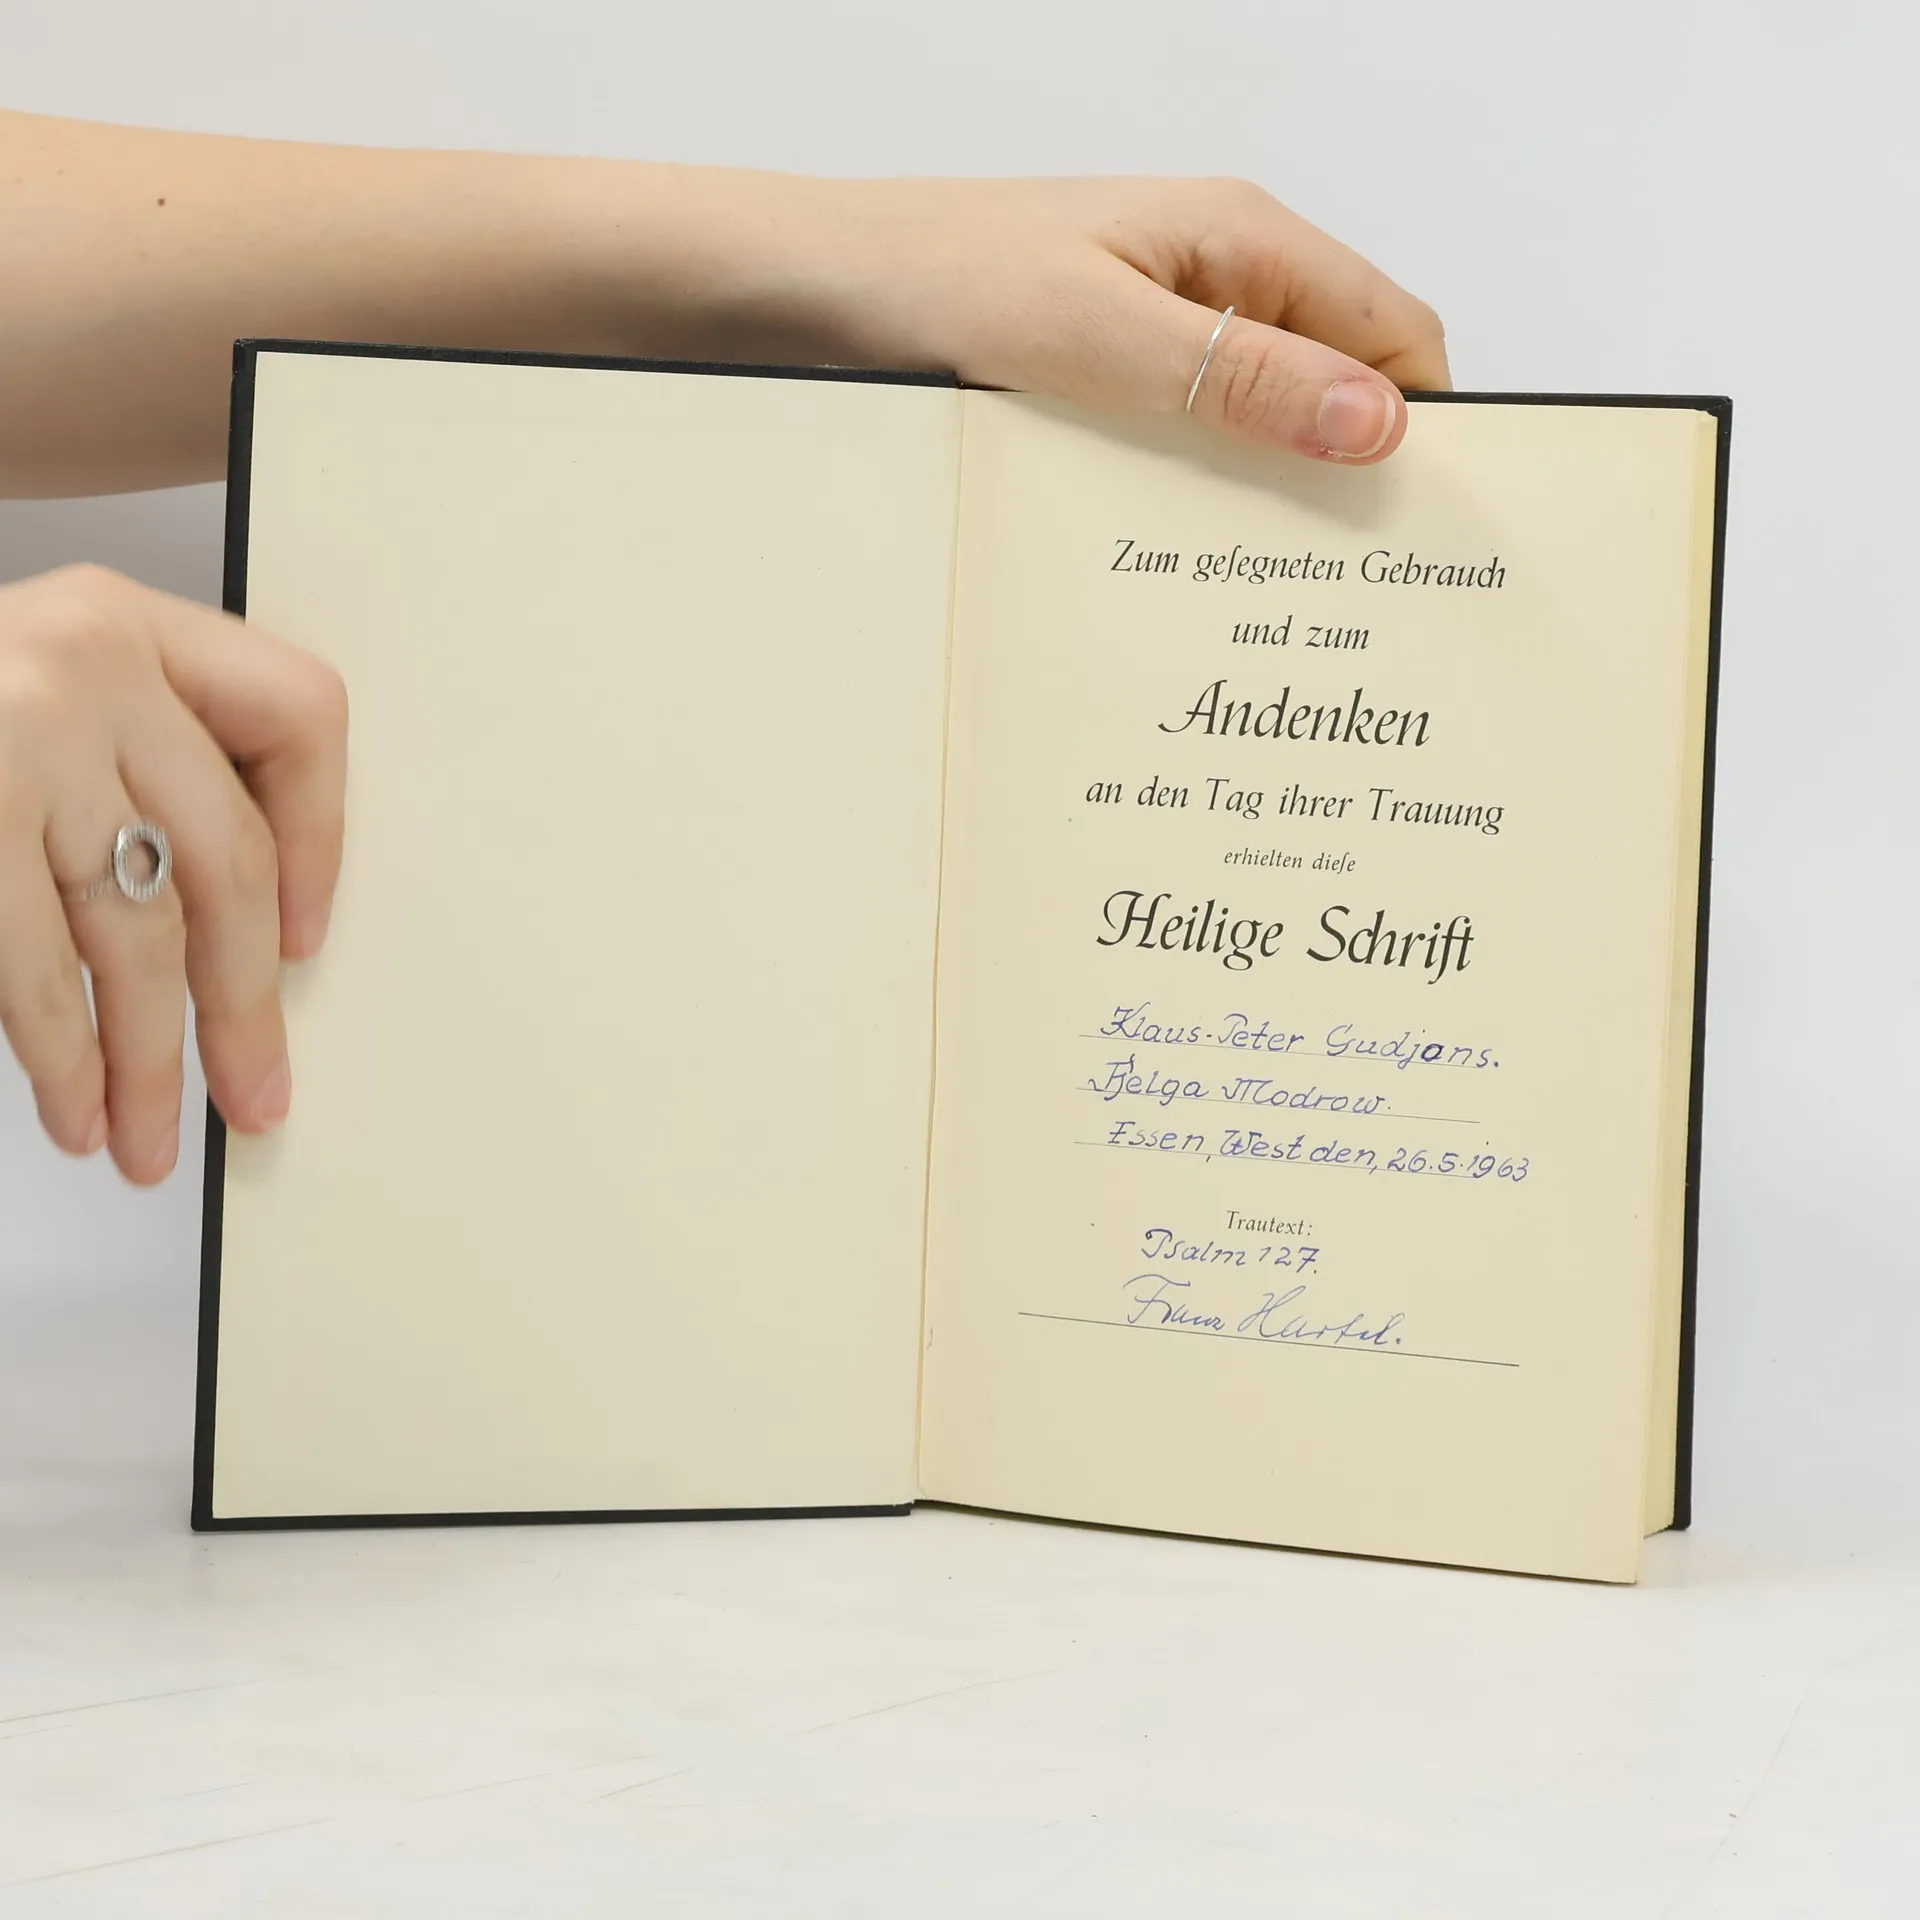 Zum geſegneten Gebrauch
und zum
Andenken
an den Tag ihrer Trauung
erhielten dieſe
Heilige Schrift
Klaus-Peter Gudjons.
Helga Modrow.
Essen, West den, 26.5.1963
Trautext:
Psalm 127.
Franz Hartel.